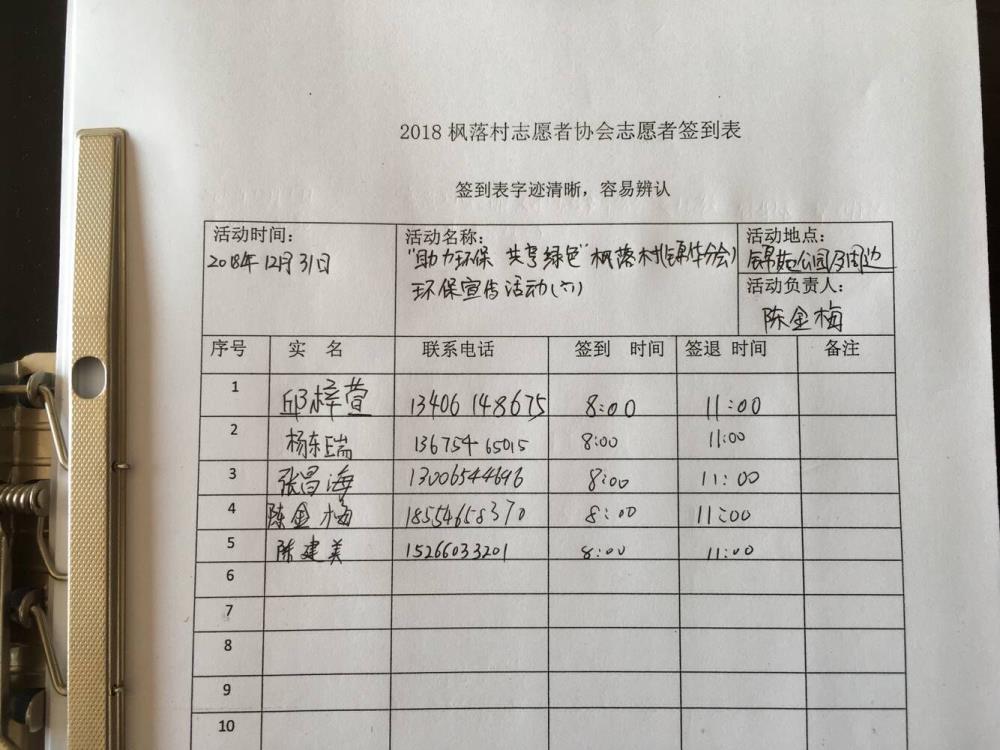 2018 枫落村志愿者协会志愿者签到表
签到表字迹清晰，容易辨认
活动时间：
2018年12月31日
活动名称：
"助力环保 共享绿色"枫落村(锦华分会)
环保宣传活动(六)
活动地点：
锦苑公园及周边
活动负责人：
陈金梅
序号 实 名 联系电话 签到 时间 签退 时间 备注
1 邱梓萱 13406148675 8:00 11:00
2 杨东瑞 13675465015 8:00 11:00
3 张昌海 13006544696 8:00 11:00
4 陈金梅 18554658370 8:00 11:00
5 陈建美 15266033201 8:00 11:00
6
7
8
9
10